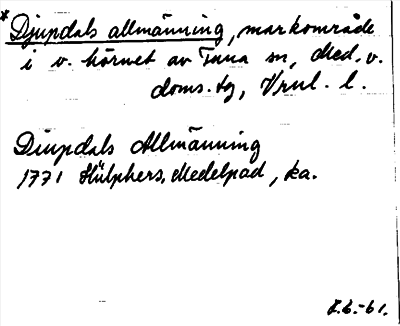 *Djupdals allmänning, markområde
i v. hörnet av Tuna sn, Med. v.
doms. tg, Vrnl. l.
Diupdals Allmänning
1771 Hülphers, Medelpad, ka.
E.B.-61.